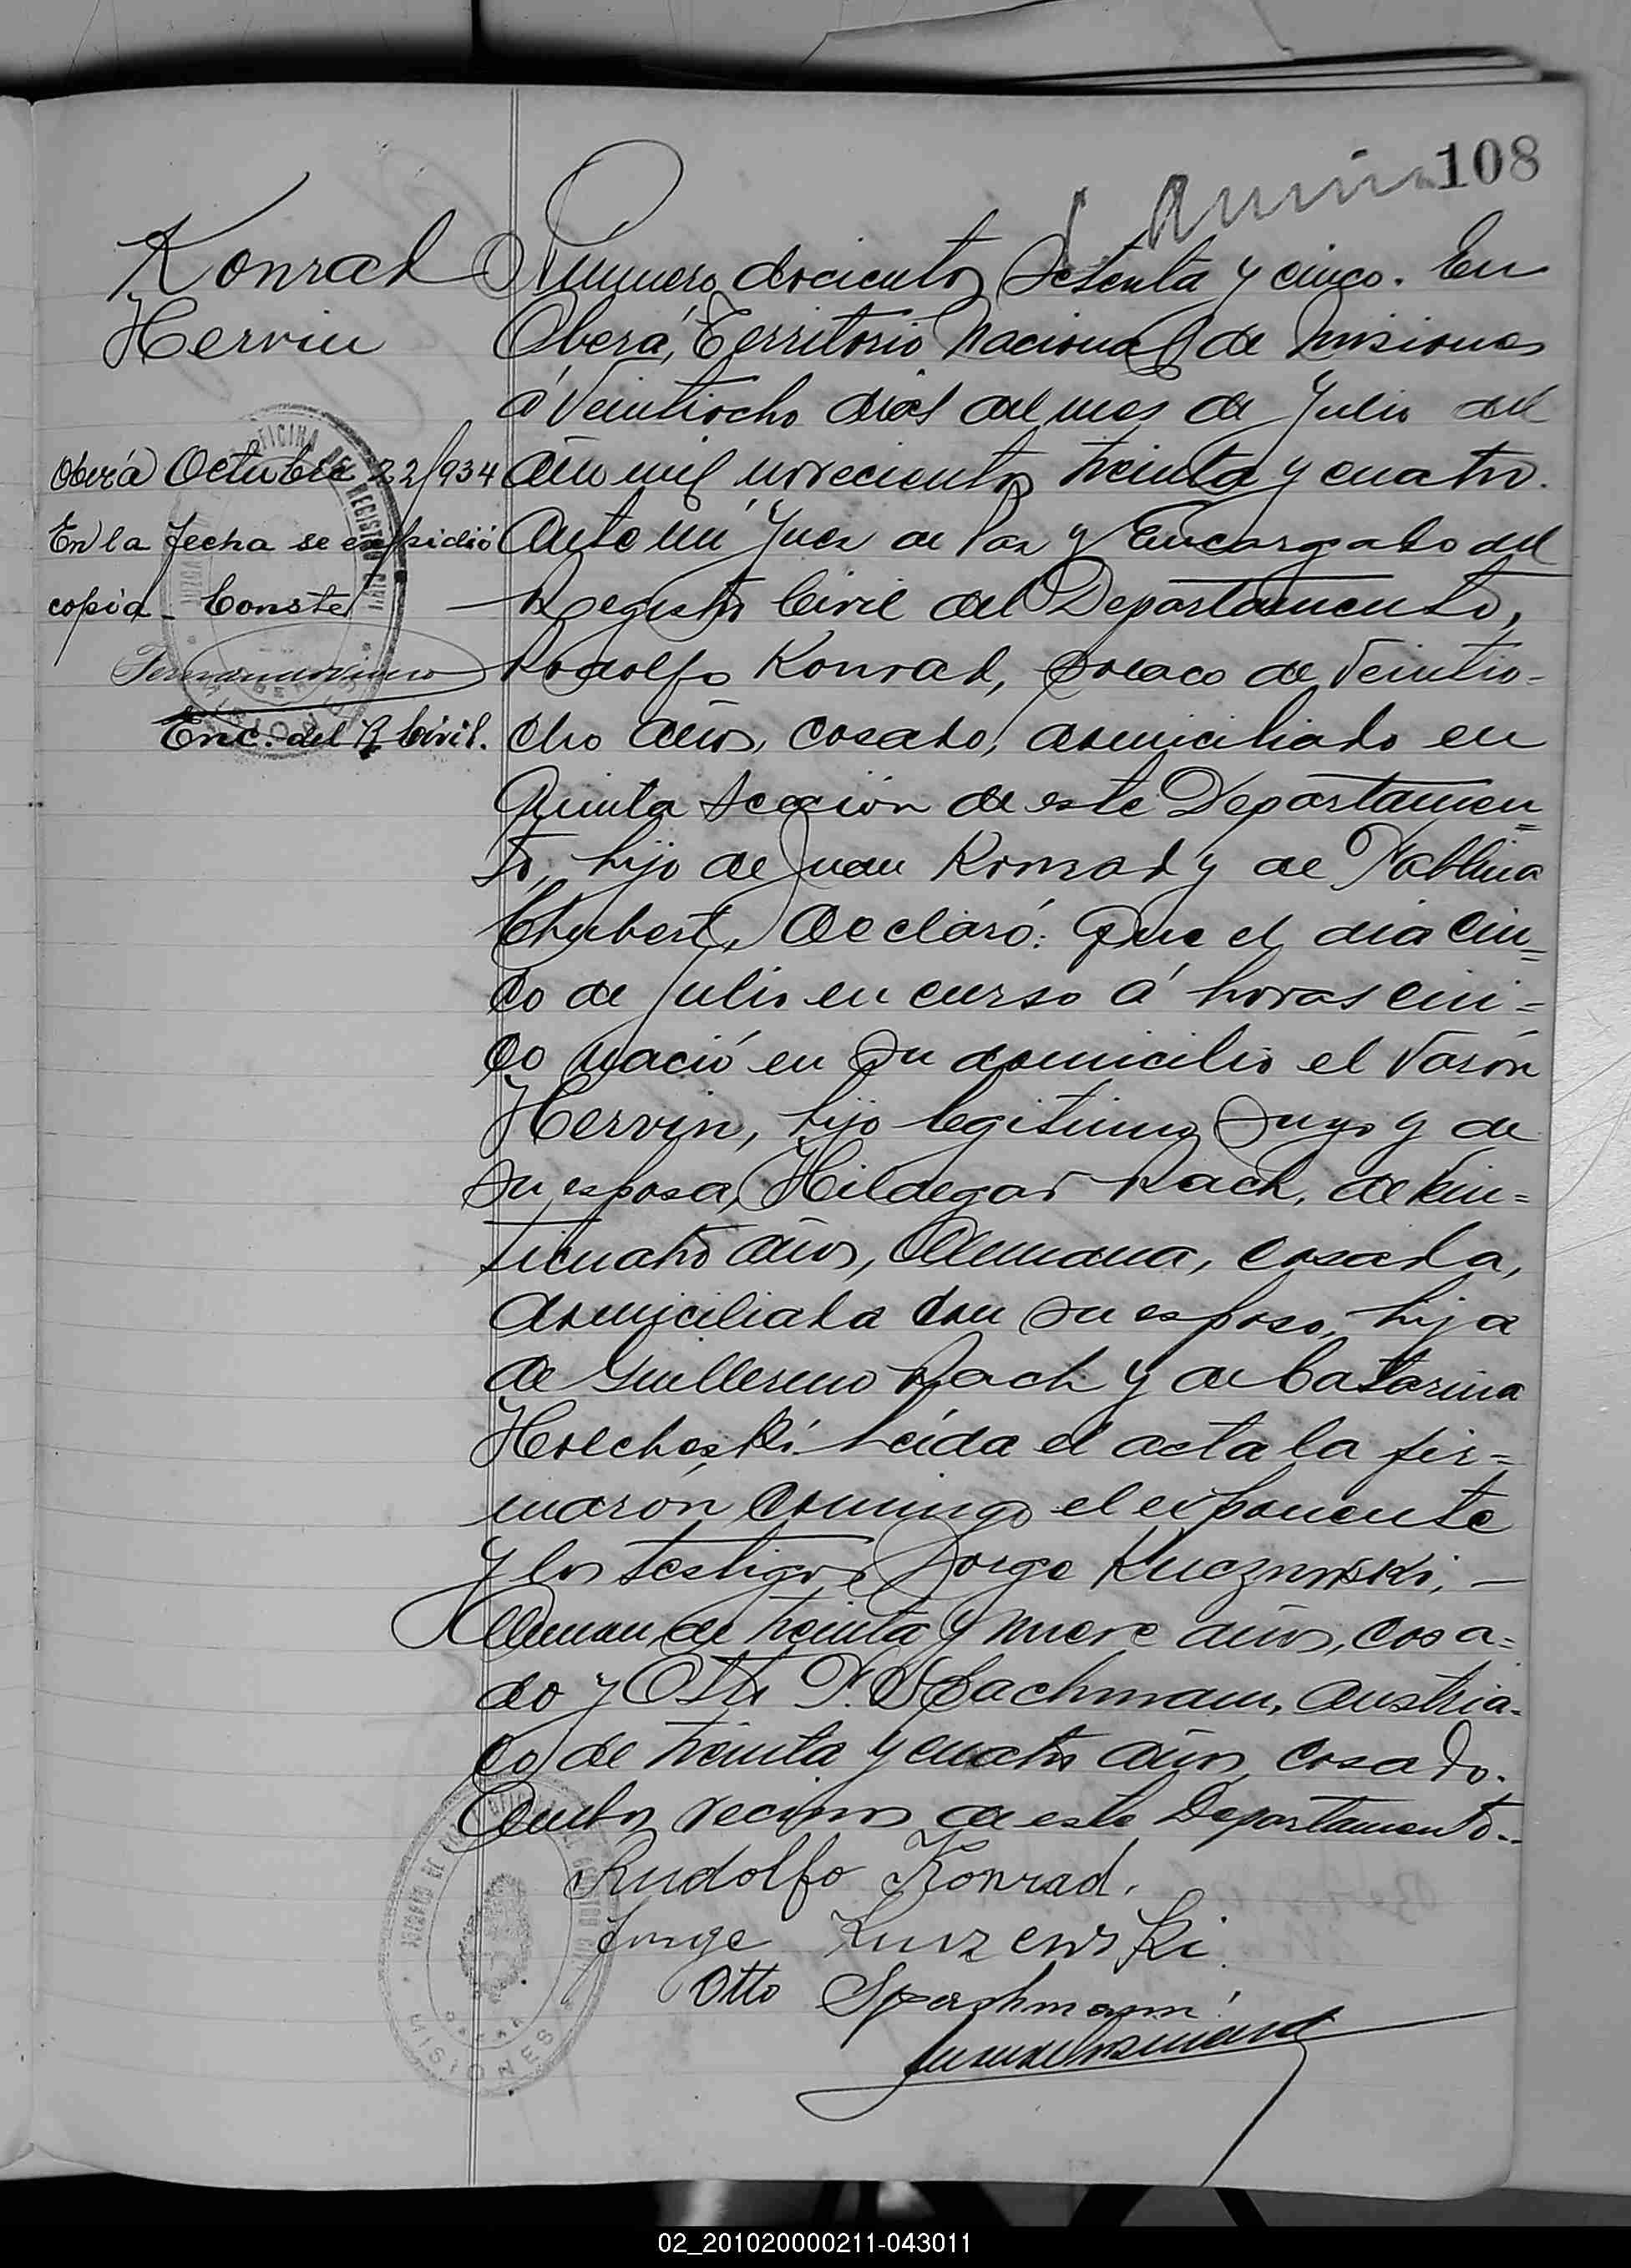 108
Konrad
Hervin
Oberá Octubre 22/934
En la fecha se expidió
copia - Conste
Enc. del R. Civil.
Numero docientos setenta y cinco. En
Oberá, Territorio Nacional de Misiones
á veintiocho dias del mes de Julio del
año mil novecientos treinta y cuatro.
Ante mí Juez de Paz y Encargado del
Registro Civil del Departamento,
Rodolfo Konrad, polaco de veintio-
cho años, casado, domiciliado en
Quinta Sección de este Departamen=
to, hijo de Juan Konrad y de
Chubert, declaró: Que el día cin=
co de Julio en curso á horas cin=
co nació en su domicilio el varón
Hervin, hijo legitimo suyo y de
su esposa, Hildegar Rach, de vein=
ticuatro años, Alemana, casada,
domiciliada con su esposo, hija
de Guillermo Rach y de Catarina
Holcheski. Leída el acta la fir=
marón conmigo el exponente
y los testigos Jorge Kucznwski, -
Aleman, de treinta y nueve años, casa=
do y Otto Spachmann, austria-
co, de treinta y cuatro años, casado.
Ambos vecinos de este Departamento.-
Rudolfo Konrad.
Jorge Kurzewski
Otto Spachmann
OFICINA DEL REGISTRO CIVIL
MISIONES
02_201020000211-043011